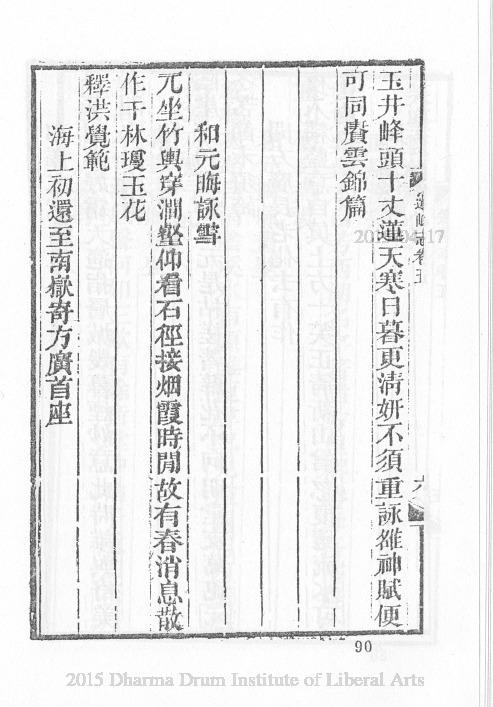 玉井峰頭十丈蓮天寒日暮更清妍不須重詠雒神賦便
可同賡雲錦篇
和元晦詠雪
兀坐竹輿穿澗壑仰看石徑接烟霞時閒故有春消息散
作千林瓊玉花
釋洪覺範
海上初還至南嶽寄方廣首座
卷五
六
90
2015 Dharma Drum Institute of Liberal Arts